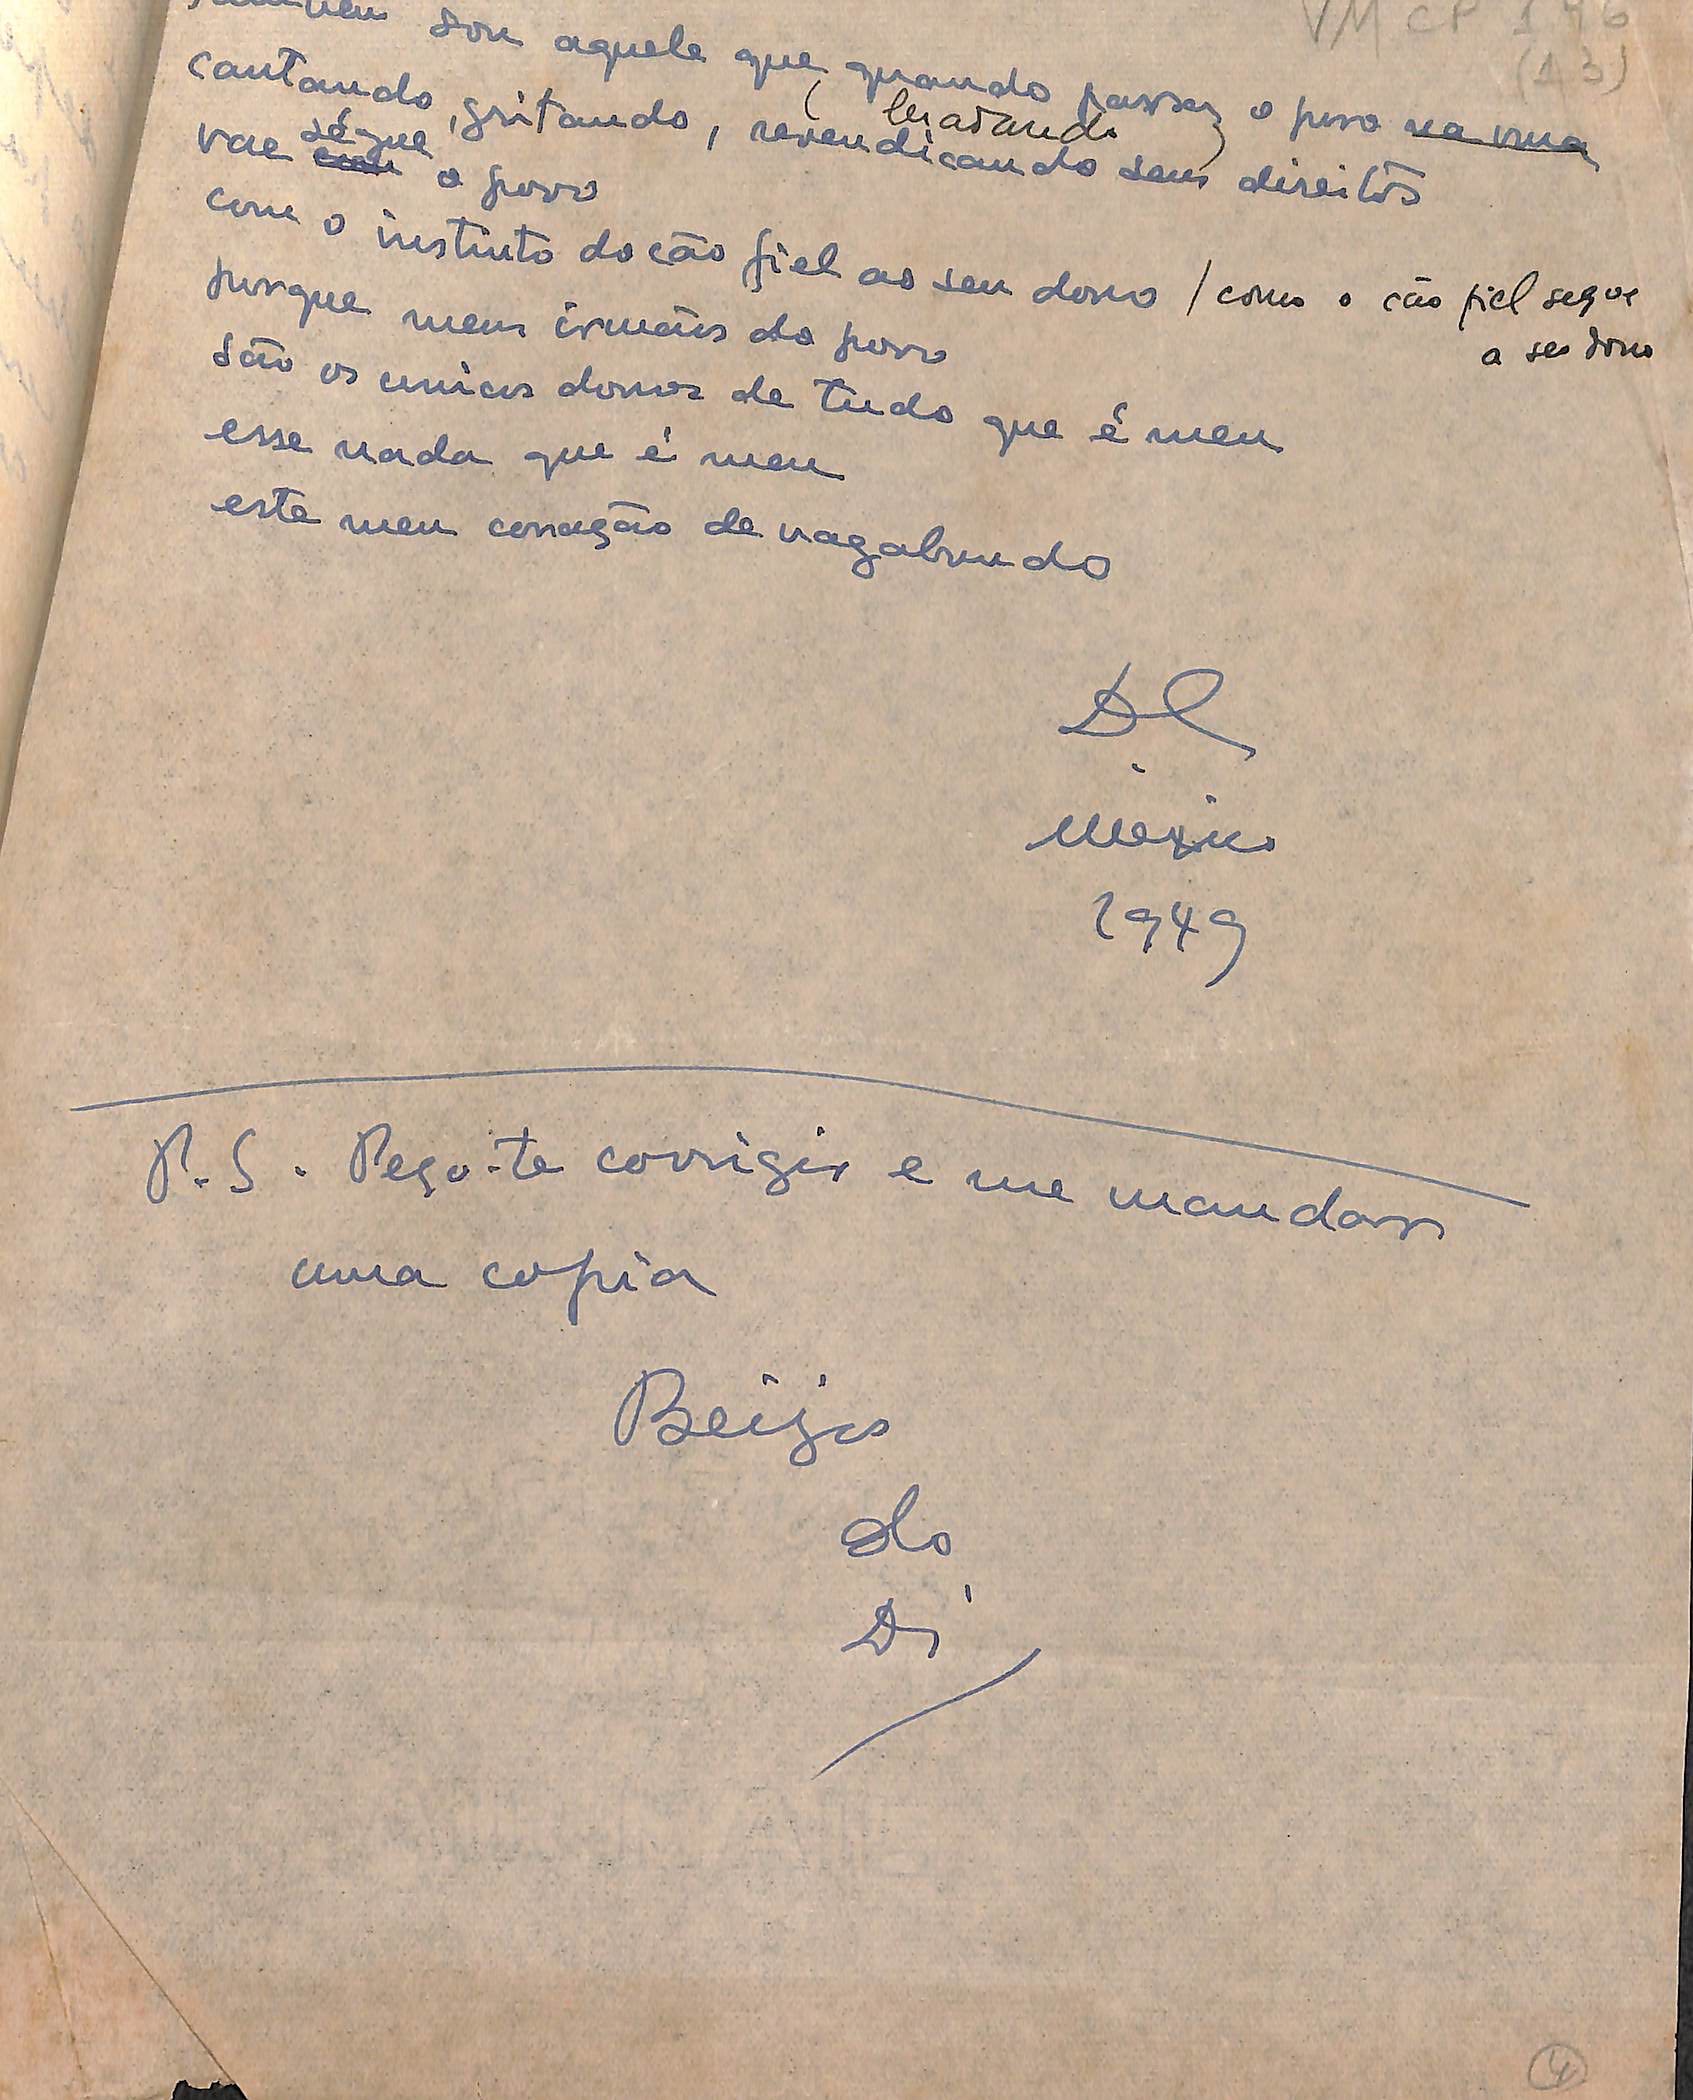 VM CP 146
(13)
sou aquele que quando passa o povo na rua
cantando, gritando, revendicando seus direitos
bradando
vae segue o povo
com o instinto do cão fiel ao seu dono / como o cão fiel segue
a seu dono
porque meus irmãos do povo
são os unicos donos de tudo que é meu
esse nada que é meu
este meu coração de vagabundo
Di
Mexico
1949
P.S. Peço-te corrigir e me mandar
uma copia
Beijos
do
Di
4